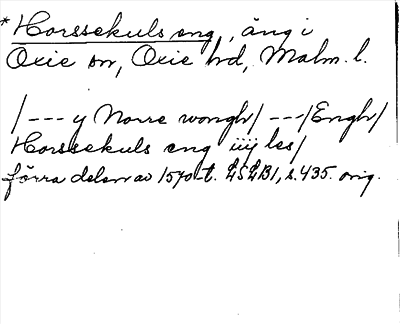 *Horssekuls eng, äng i
Oxie sn, Oxie hd, Malm. l.
/--- y Norre wongh/ ---/Engh/
Horssekuls eng iiij les/
förra delen av 1570-t. LSLB1, s. 435. orig.